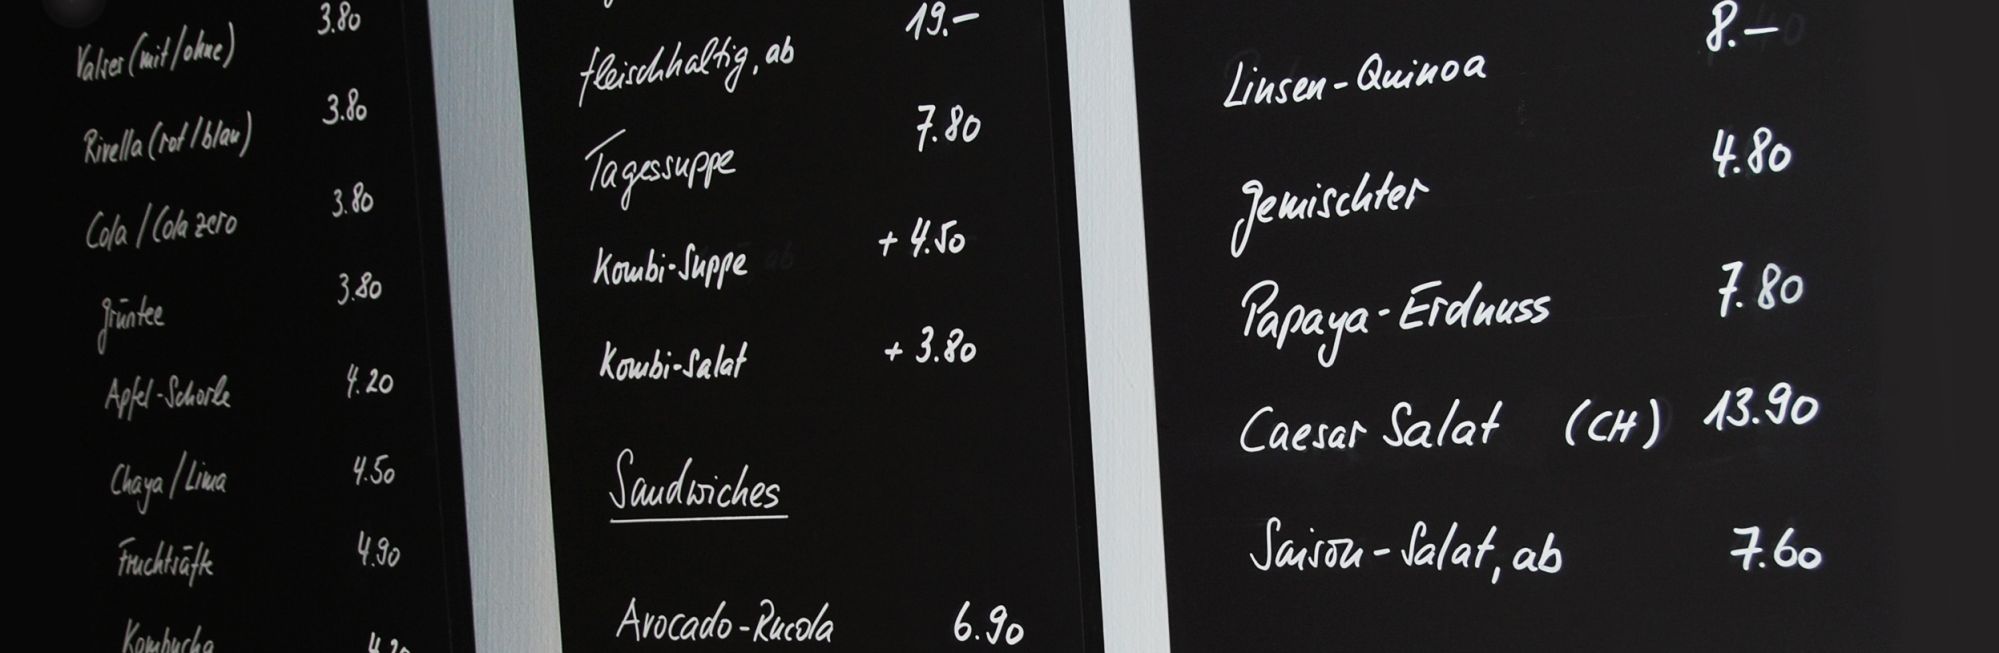 Valser (mit/ohne) 3.80
Rivella (rot/blau) 3.80
Cola / Cola zero 3.80
grüntee 3.80
Apfel-Schorle 4.20
Chaya / Lima 4.50
Fruchtsäfte 4.90
Kombucha
fleischhaltig, ab 19.–
Tagessuppe 7.80
Kombi-Suppe + 4.50
Kombi-Salat + 3.80
Sandwiches
Avocado-Rucola 6.90
Linsen-Quinoa 8.–
gemischter 4.80
Papaya-Erdnuss 7.80
Caesar Salat (CH) 13.90
Saison-Salat, ab 7.60